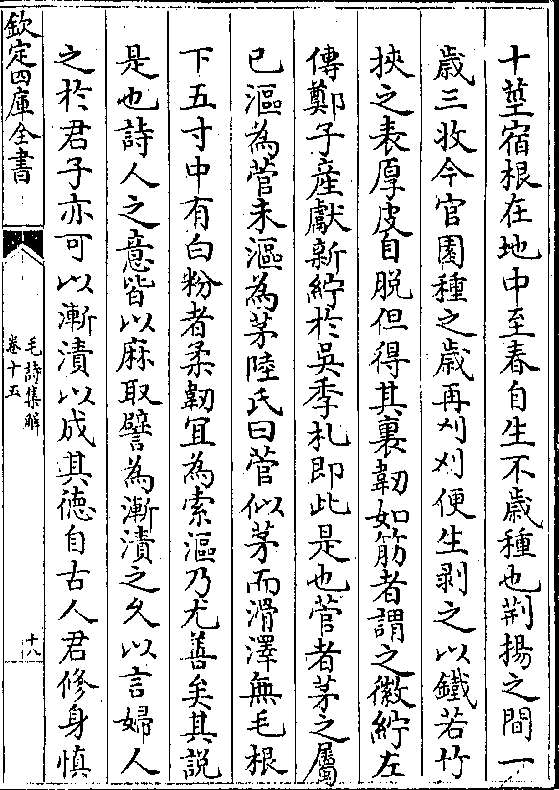 十莖宿根在地中至春自生不歲種也荆揚之間一
歲三收今官園種之歲再刈刈便生剥之以鐵若竹
挾之表厚皮自脱但得其裏韌如筋者謂之徽紵左
傳鄭子産獻新紵於吳季札即此是也菅者茅之屬
已漚為菅未漚為茅陸氏曰菅似茅而滑澤無毛根
下五寸中有白粉者柔韌宜為索漚乃尤善矣其説
是也詩人之意皆以麻取譬為漸漬之久以言婦人
之於君子亦可以漸漬以成其徳自古人君修身慎
欽定四庫全書
毛詩集解
卷十五
十八